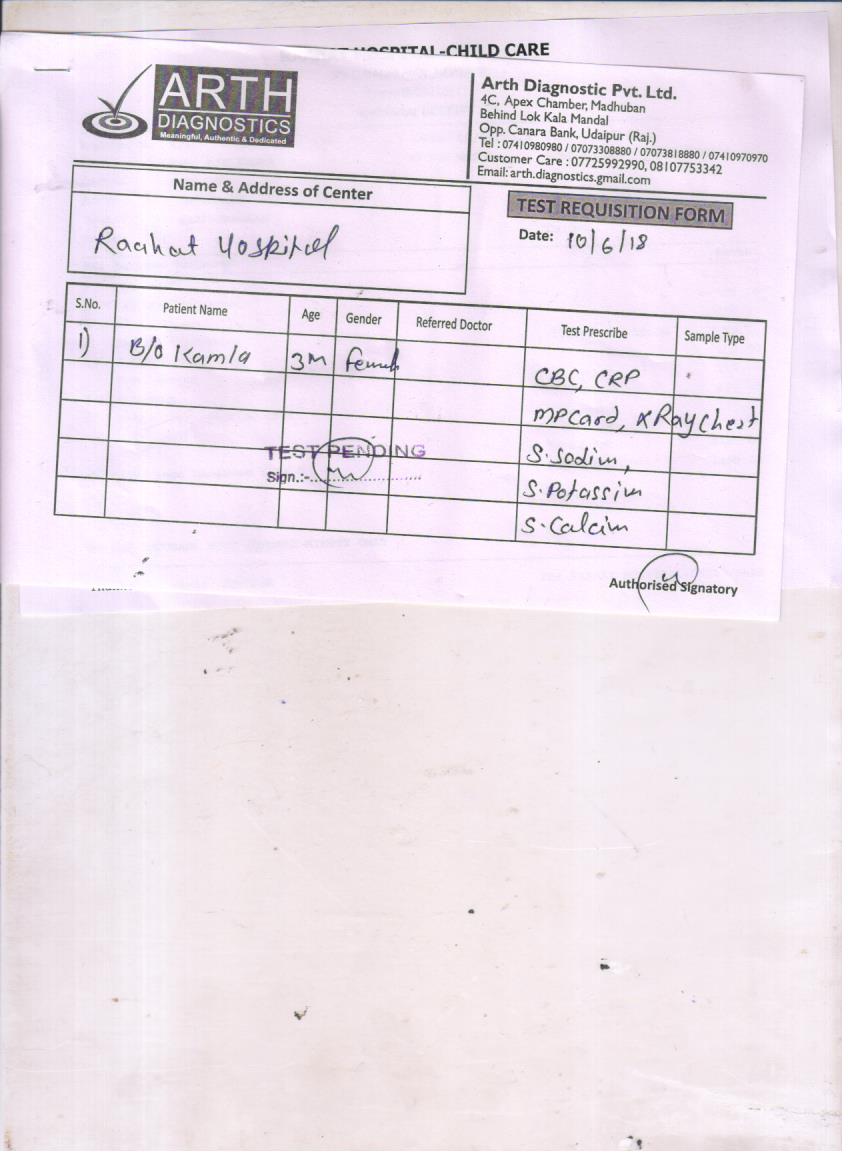 HOSPITAL-CHILD CARE
ARTH
DIAGNOSTICS
Meaningful, Authentic & Dedicated
Arth Diagnostic Pvt. Ltd.
4C, Apex Chamber, Madhuban
Behind Lok Kala Mandal
Opp. Canara Bank, Udaipur (Raj.)
Tel : 07410980980 / 07073308880 / 07073818880 / 07410970970
Customer Care : 07725992990, 08107753342
Email: arth.diagnostics.gmail.com
Name & Address of Center
Raahat Hospital
TEST REQUISITION FORM
Date: 10/6/18
S.No. Patient Name Age Gender Referred Doctor Test Prescribe Sample Type
1) B/O Kamla 3M Female
CBC, CRP
MPCard, XRay Chest
S. Sodim,
S. Potassim
S. Calcim
TEST PENDING
Sign.:-
Authorised Signatory